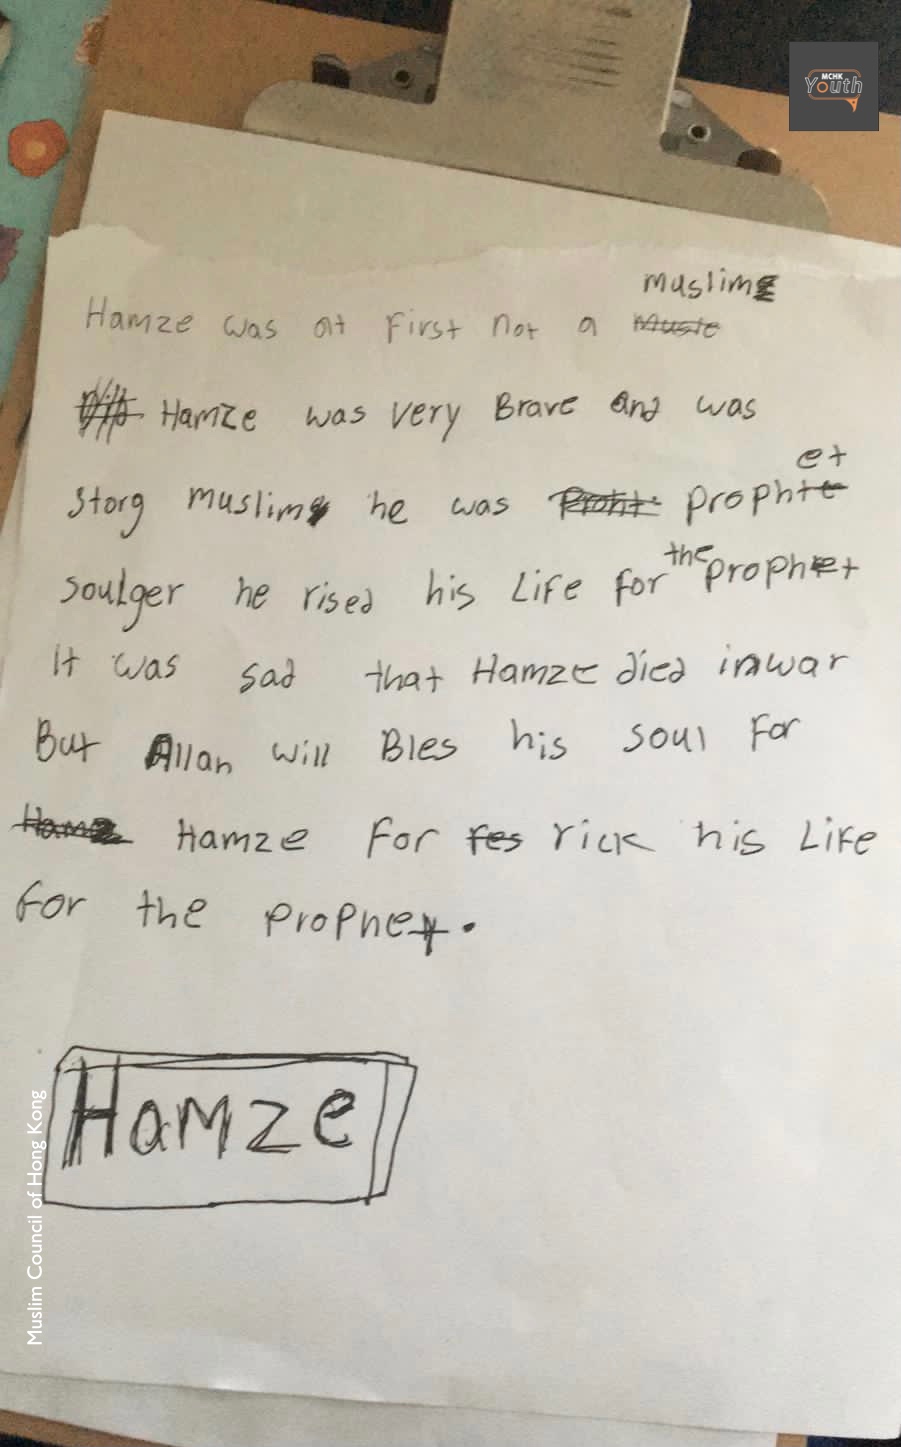 MCHK
Youth
muslim
Hamze was at first not a
Hamze was very Brave and was
Storg muslim he was prophet
soulger he rised his Life for the prophet
It was sad that Hamze died in war
But Allah will Bles his soul For
Hamze For rick his Life
for the Prophet.
Hamze
Muslim Council of Hong Kong